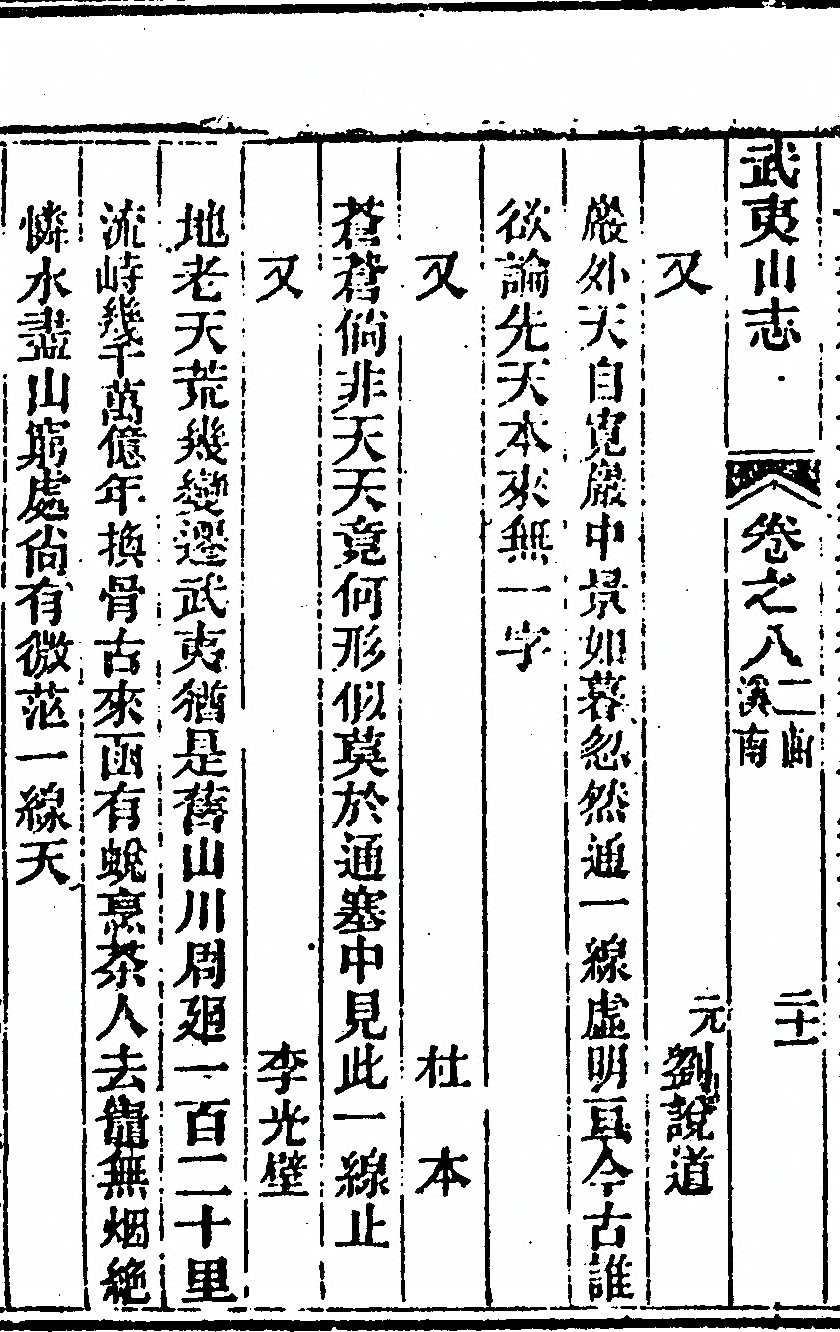 武夷山志 卷之八 二曲溪南 二十一
又 元 劉說道
巖外天自寬巖中景如暮忽然通一線虛明亘今古誰
欲論先天本來無一字
又 杜本
蒼蒼倘非天天竟何形似莫於通塞中見此一線止
又 李光壁
地老天荒幾變遷武夷猶是舊山川周廻一百二十里
流峙幾千萬億年換骨古來函有蛻烹茶人去竈無烟絶
憐水盡山窮處尙有微茫一線天